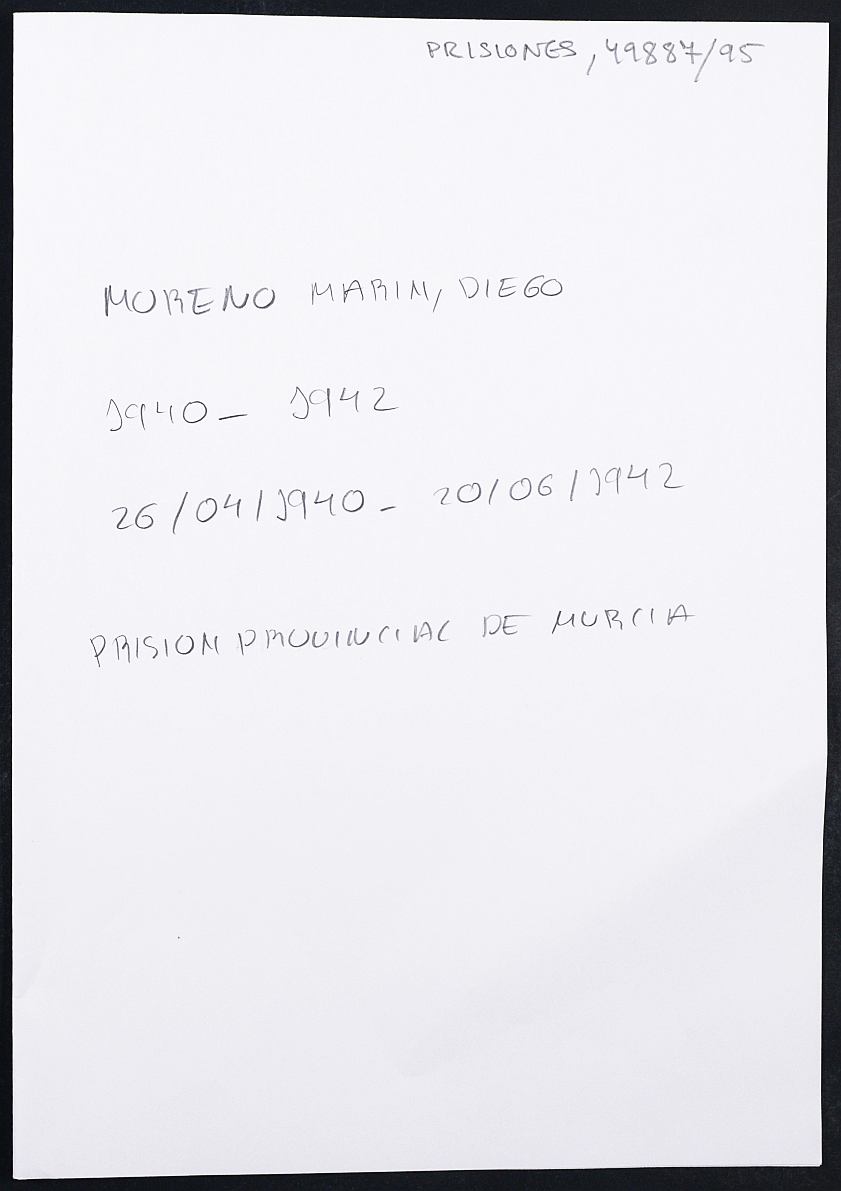 PRISIONES, 49887/95
MORENO MARIN, DIEGO
1940 - 1942
26/04/1940 - 20/06/1942
PRISION PROVINCIAL DE MURCIA